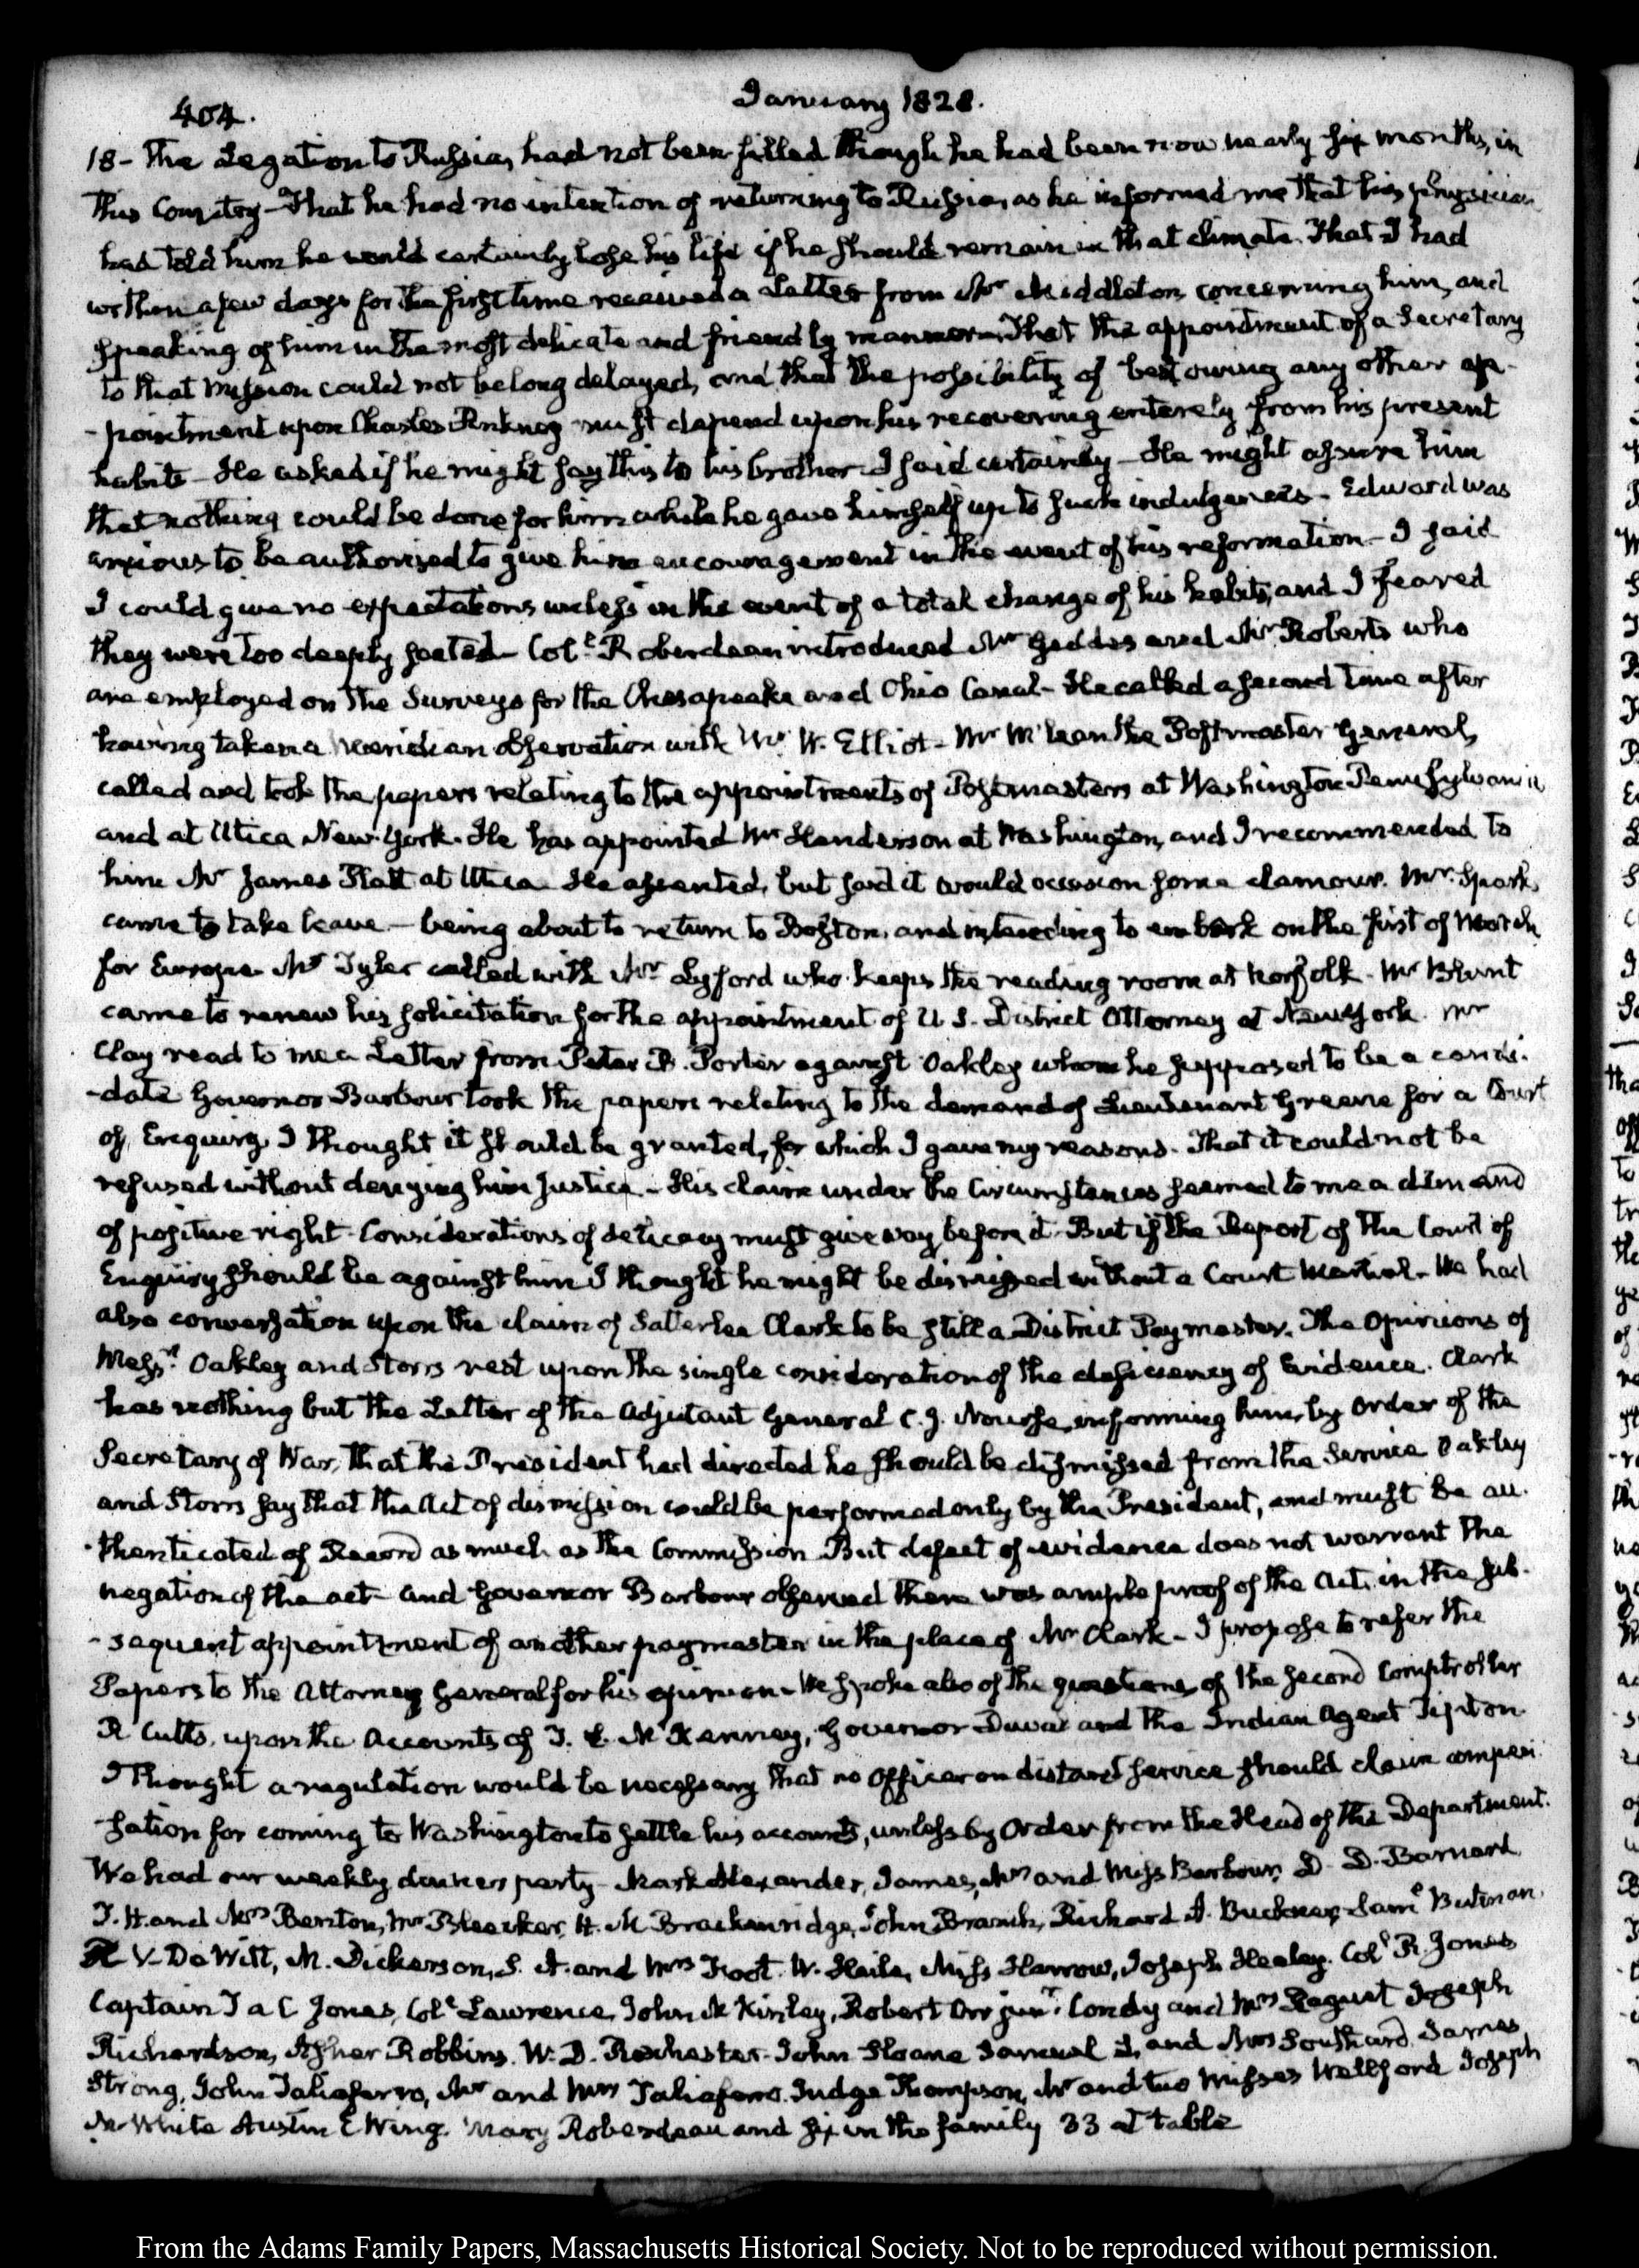 404.
January 1828.
18 - The Legation to Russia, had not been filled though he had been now nearly six months, in
this Country - That he had no intention of returning to Russia, as he informed me that his physician
had told him he would certainly lose his life if he should remain in that climate. That I had
within a few days for the first time received a Letter from Mr Middleton, concerning him, and
speaking of him in the most delicate and friendly manner. That the appointment of a Secretary
to that Mission could not be long delayed, and that the possibility of bestowing any other ap-
-pointment upon Charles Pinkney must depend upon his recovering entirely from his present
habits - He asked if he might say this to his brother. I said certainly - He might assure him
that nothing could be done for him while he gave himself up to such indulgences - Edward was
anxious to be authorized to give him encouragement in the event of his reformation - I said
I could give no expectations unless in the event of a total change of his habits, and I feared
they were too deeply seated - Coll Roberdeau introduced Mr Geddes and Mr Roberts who
are employed on the Surveys for the Chesapeake and Ohio Canal - He called a second time after
having taken a meridian observation with Mr W. Elliot - Mr McLean the Postmaster General,
called and took the papers relating to the appointments of Postmasters at Washington Pennsylvania
and at Utica New-York. He has appointed Mr Henderson at Washington, and I recommended to
him Mr James Platt at Utica. He assented, but said it would occasion some clamour. Mr. Sparks
came to take leave - being about to return to Boston, and intending to embark on the first of March
for Europe. Mr Tyler called with Mr Lyford who keeps the reading room at Norfolk. Mr Blunt
came to renew his solicitation for the appointment of U.S. District Attorney at New York. Mr
Clay read to me a Letter from Peter B. Porter against Oakley whom he supposed to be a candi-
-date Governor Barbour took the papers relating to the demand of Lieutenant Greene for a Court
of Enquiry. I thought it should be granted, for which I gave my reasons. That it could not be
refused without denying him justice - His claim under the Circumstances seemed to me a demand
of positive right - Considerations of delicacy must give way before it. But if the Report of the Court of
Enquiry should be against him I thought he might be dismissed without a Court Martial. We had
also conversation upon the claim of Satterlee Clark to be still a District Paymaster. The Opinions of
Messrs Oakley and Storrs rest upon the single consideration of the deficiency of Evidence. Clark
has nothing but the Letter of the Adjutant General C. J. Nourse, informing him, by order of the
Secretary of War, that the President had directed he should be dismissed from the Service Oakley
and Storrs say that the Act of dismission could be performed only by the President, and must be au-
-thenticated of Record as much as the Commission. But defect of evidence does not warrant the
negation of the act - and Governor Barbour observed there was ample proof of the Act, in the sub-
-sequent appointment of another paymaster in the place of Mr Clark - I propose to refer the
Papers to the Attorney General for his opinion - We spoke also of the questions of the Second Comptroller
R Cutts, upon the Accounts of T. L. McKenney, Governor Duval and the Indian Agent Tipton.
I thought a regulation would be necessary that no Officer on distant service should claim compen-
-sation for coming to Washington to settle his accounts, unless by Order from the Head of the Department.
We had our weekly dinner party - Mark Alexander, James, Mrs and Miss Barbour, D. D. Barnard.
T. H. and Mrs Benton, Mr Bleecker, H. M Brackenridge, John Branch, Richard A. Buckner, Saml Butman.
V. De Witt, M. Dickerson, S. A. and Mrs Foot. W. Haile, Miss Harrow, Joseph Healey. Coll R. Jones
Captain T a C Jones, Coll Lawrence, John McKinley, Robert Orr junr. Condy and Mrs Raguet Joseph
Richardson, Asher Robbins. W. B. Rochester. John Sloane Samuel L. and Mrs Southard. James
Strong, John Taliaferro, Mr and Mrs Taliaferro. Judge Thompson, Mr and two Misses Wellford Joseph
M White Austin E Wing. Mary Roberdeau and six in the family 33 at table
From the Adams Family Papers, Massachusetts Historical Society. Not to be reproduced without permission.